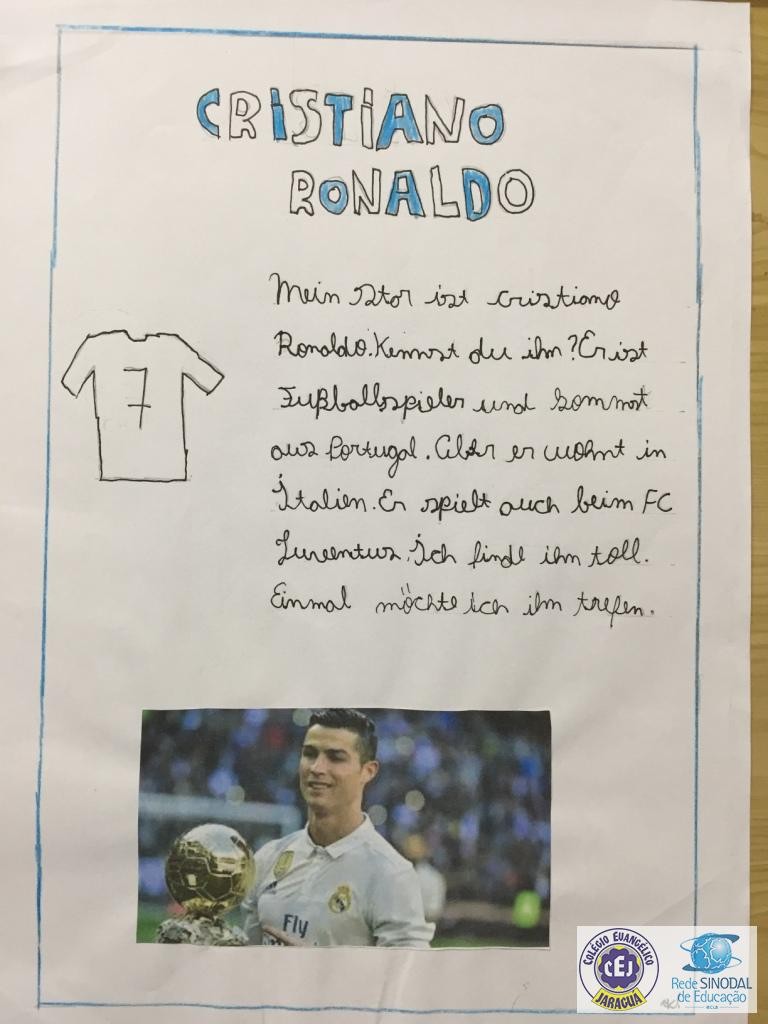 CRISTIANO
RONALDO
Mein Star ist cristiano
Ronaldo. Kennst du ihn? Er ist
Fußballspieler und kommt
aus Portugal. Aber er wohnt in
Italien. Er spielt auch beim FC
Juventus. Ich finde ihn toll.
Einmal möchte ich ihn trefen.
7
Fly
COLÉGIO EVANGÉLICO
CEJ
JARAGUÁ
Rede SINODAL
de Educação